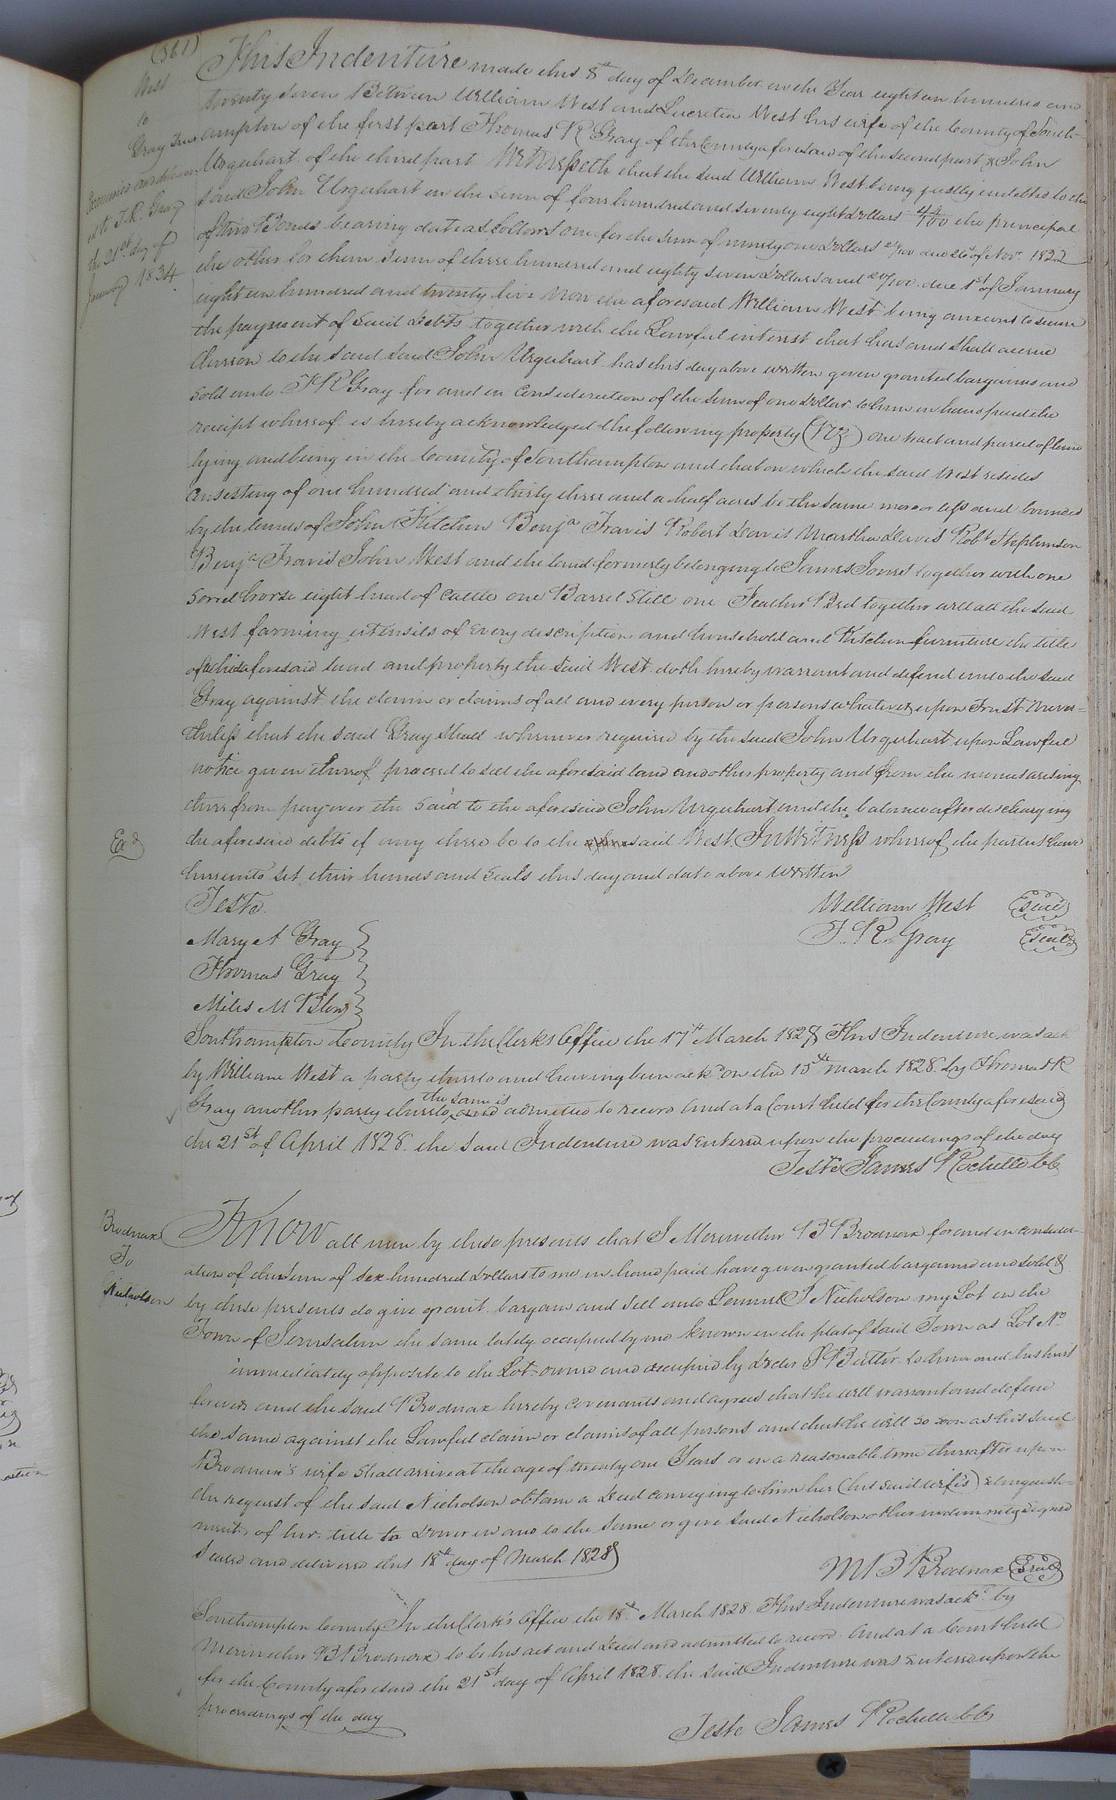 (361)
West
to
Gray Trus
Examined and delivered
to T. R. Gray
the 21st day of
January 1834
This Indenture made this 8th day of December in the Year eighteen hundred and
twenty seven Between William West and Lucretia West his wife of the County of South-
ampton of the first part Thomas R Gray of the County aforesaid of the second part & John
Urquhart of the third part Witnesseth that the said William West being justly indebted to the
said John Urquhart in the sum of four hundred and seventy eight dollars /100 the principal
of two Bonds bearing date as follows one for the sum of ninety one Dollars /100 due 26th of Novr. 1822
the other for them sum of three hundred and eighty seven Dollars and /100 due 1st of January
eighteen hundred and twenty five Now the aforesaid William West being anxious to secure
the payment of said Debts together with the Lawful interest that has and shall accrue
thereon to the said said John Urquhart has this day above written given granted bargained and
sold unto T R Gray for and in consideration of the sum of one Dollar to him in hand paid the
receipt whereof is hereby acknowledged the following property (viz) one tract and parcel of land
lying and being in the County of Southampton and that on which the said West resides
consisting of one hundred and thirty three and a half acres be the same more or less and bounded
by the lands of John Kitchen Benja Travis Robert Davis Martha Davis Robt Stephenson
Benja Travis John West and the land formerly belonging to James Jones together with one
sorrel horse eight head of Cattle one Barrel Still one Feather Bed together with all the said
West farming utensils of every description and household and Kitchen furniture the title
of which aforesaid land and property the said West doth hereby warrant and defend unto the said
Gray against the claim or claims of all and every person or persons whatever upon Trust Never-
theless that the said Gray shall whenever required by the said John Urquhart upon Lawful
notice given thereof proceed to sell the aforesaid land and other property and from the monies arising
there from pay over the said to the aforesaid John Urquhart and the balance after discharging
Exd
the aforesaid debts if any there be to the said West In Witness whereof the parties have
hereunto set their hands and Seals this day and date above written
Teste
William West (Seal)
T. R. Gray (Seal)
Mary A Gray
Thomas Gray
Miles M Blow
Southampton County In the Clerks Office the 17th March 1828 This Indenture was ack
by William West a party thereto and having been ackd on the 15th march 1828 by Thomas R
Gray another party thereto the same is admitted to record and at a Court held for the County aforesaid
the 21st of April 1828 the said Indenture was entered upon the proceedings of the day
Teste James Rochelle CC
Brodnax
To
Nicholson
Know all men by these presents that I Meriwether B Brodnax for and in consider-
ation of the sum of six hundred Dollars to me in hand paid have given granted bargained and sold &
by these presents do give grant bargain and sell unto Lemuel J Nicholson my Lot in the
Town of Jerusalem the same lately occupied by me known in the plat of said Town as Lot No
immediately opposite to the Lot owned and occupied by Butler to him and his heirs
forever and the said Brodnax hereby covenants and agrees that he will warrant and defend
the same against the Lawful claim or claims of all persons and that he will so soon as his said
Brodnax's wife shall arrive at the age of twenty one Years or in a reasonable time thereafter upon
the request of the said Nicholson obtain a Deed conveying to him her (his said wifes) relinquish-
ment of her title to Dower in and to the same or give said Nicholson other indemnity signed
Sealed and delivered this 18th day of March 1828
M B Brodnax (Seal)
Southampton County In the Clerk's Office the 18th March 1828 This Indenture was ackd by
Meriwether B Brodnax to be his act and Deed and admitted to record And at a Court held
for the County aforesaid the 21st day of April 1828 the said Indenture was entered upon the
proceedings of the day
Teste James Rochelle CC